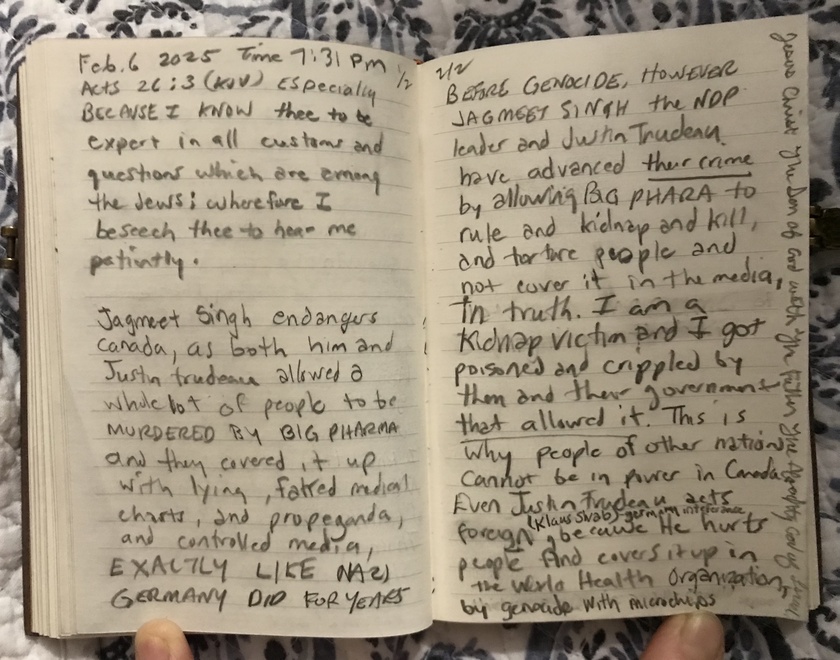 Feb. 6 2025 Time 7:31 pm 1/2
Acts 26:3 (KJV) Especially
BECAUSE I KNOW thee to be
expert in all customs and
questions which are among
the Jews: wherefore I
beseech thee to hear me
patiently.
Jagmeet Singh endangers
Canada, as both him and
Justin trudeau allowed a
whole lot of people to be
MURDERED BY BIG PHARMA
and they covered it up
with lying, faked medical
charts, and propeganda,
and controlled media,
EXACTLY LIKE NAZI
GERMANY DID FOR YEARS
2/2
BEFORE GENOCIDE, HOWEVER
JAGMEET SINGH the NDP
leader and Justin Trudeau
have advanced their crime
by allowing BIG PHARA to
rule and kidnap and kill,
and torture people and
not cover it in the media,
in truth. I am a
Kidnap victim and I got
poisoned and crippled by
them and their government
that allowed it. This is
why people of other nations
cannot be in power in Canada.
Even Justin Trudeau acts
(Klaus Swab)-germany
foreign, because He hurts
people and covers it up in
the World Health Organization,
by genocide with microchips
Jesus Christ The Son of God with The Father The Almighty God of